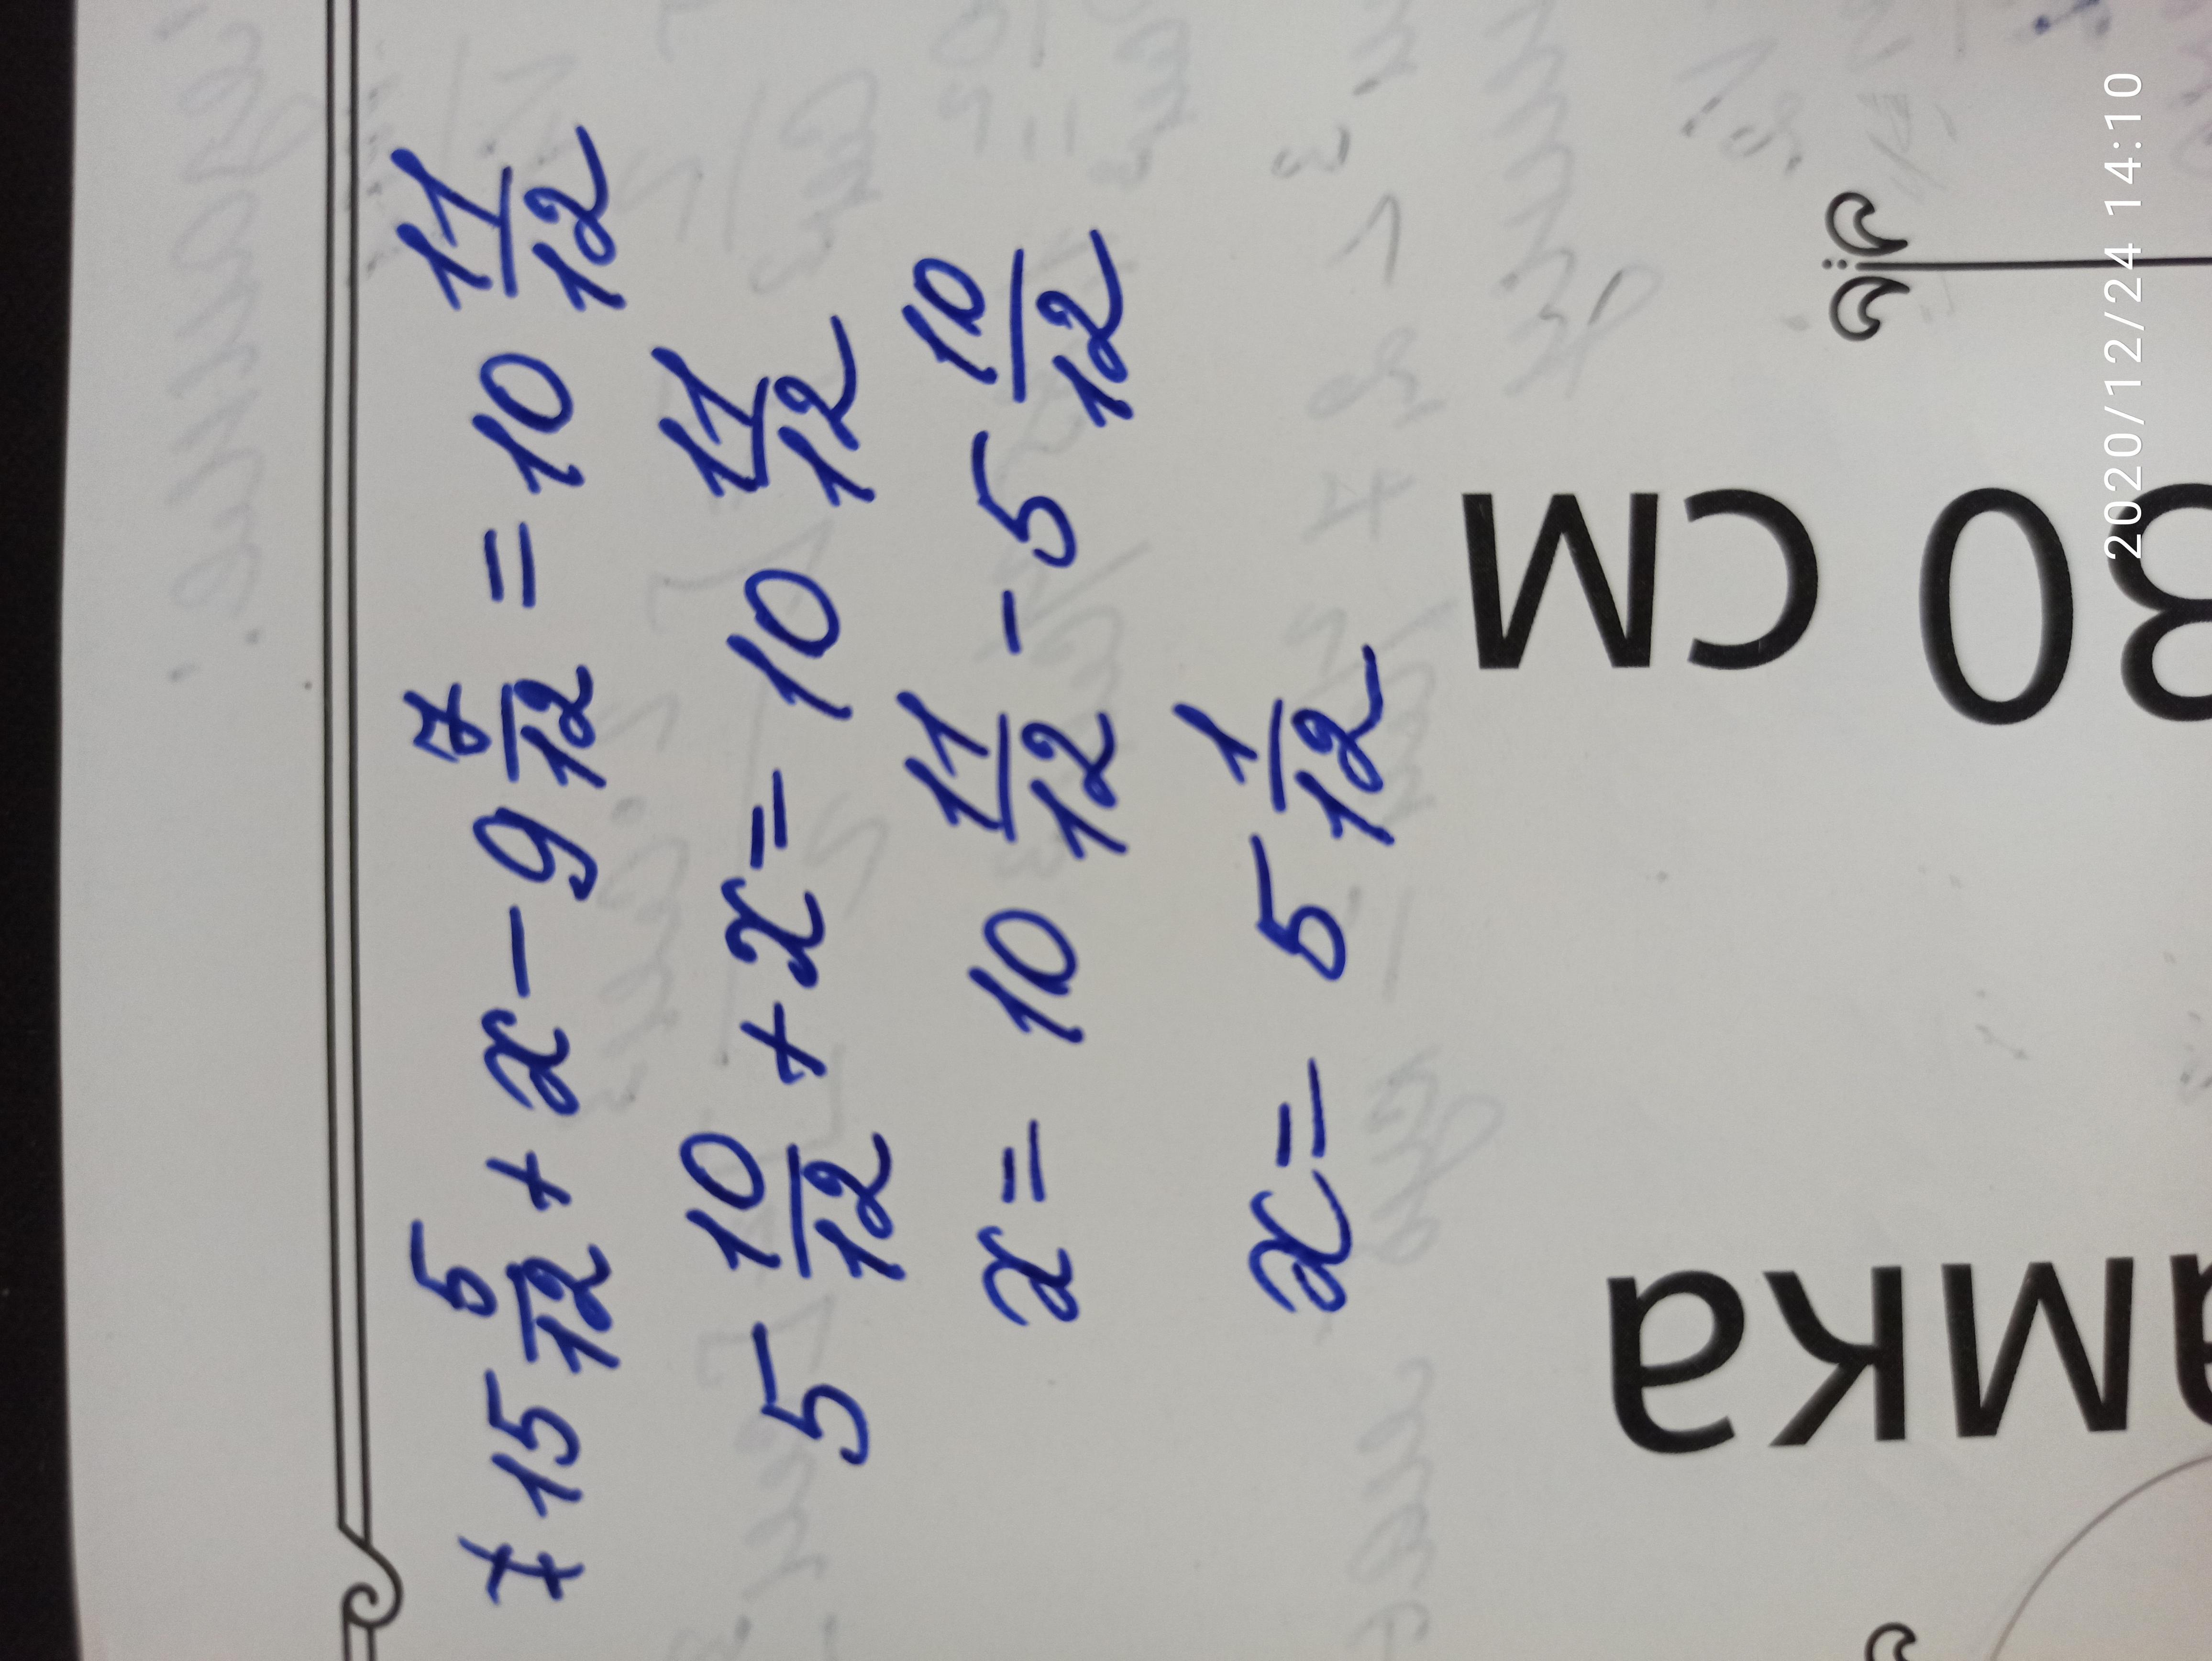 * 15 5/12 + x - 9 7/12 = 10 11/12
5 10/12 + x = 10 11/12
x = 10 11/12 - 5 10/12
x = 5 1/12
30 см
мка
2020/12/24 14:10